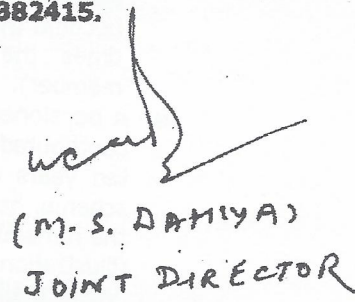 382415.
(M. S. DAHIYA)
JOINT DIRECTOR